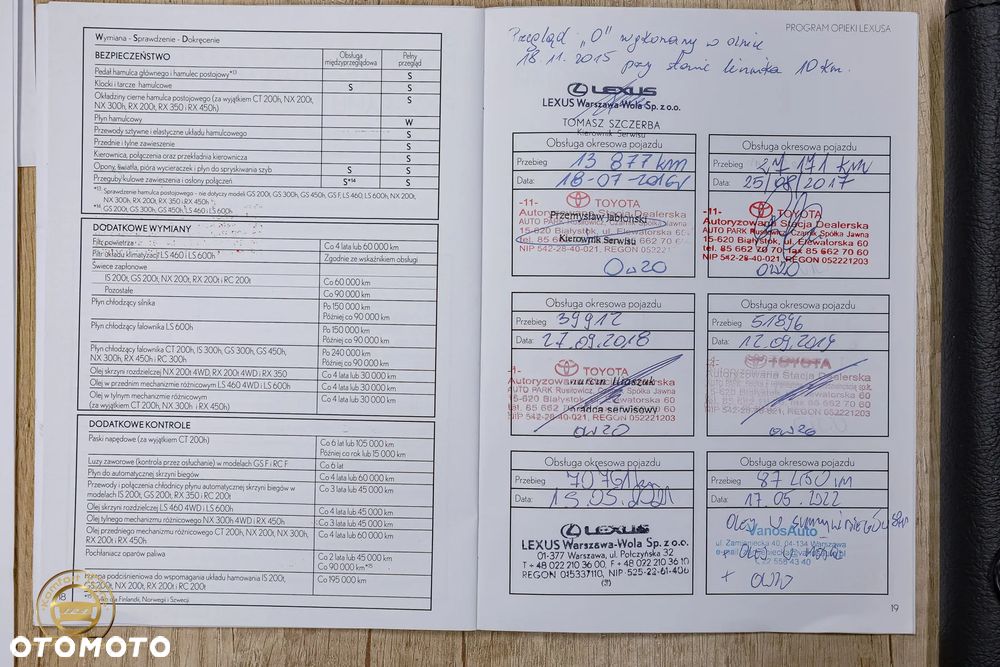 Wymiana - Sprawdzenie - Dokręcenie
BEZPIECZEŃSTWO
Obsługa międzyprzeglądowa
Pełny przegląd
Pedał hamulca głównego i hamulec postojowy*13 S
Klocki i tarcze hamulcowe S S
Okładziny cierne hamulca postojowego (za wyjątkiem CT 200h, NX 200t, S
NX 300h, RX 200t, RX 350 i RX 450h)
Płyn hamulcowy W
Przewody sztywne i elastyczne układu hamulcowego S
Przednie i tylne zawieszenie S
Kierownica, połączenia oraz przekładnia kierownicza S
Opony, światła, pióra wycieraczek i płyn do spryskiwania szyb S S
Przeguby kulowe zawieszenia i osłony połączeń S*14 S
*13. Sprawdzenie hamulca postojowego - nie dotyczy modeli GS 200t, GS 300h, GS 450h, GS F, LS 460, LS 600h, NX 200t,
NX 300h, RX 200t, RX 350 i RX 450h
*14. GS 200t, GS 300h, GS 450h, LS 460 i LS 600h
DODATKOWE WYMIANY
Filtr powietrza Co 4 lata lub 60 000 km
Filtr układu klimatyzacji LS 460 i LS 600h Zgodnie ze wskaźnikiem obsługi
Świece zapłonowe
IS 200t, GS 200t, NX 200t, RX 200t i RC 200t Co 60 000 km
Pozostałe Co 90 000 km
Płyn chłodzący silnika Po 150 000 km
Później co 90 000 km
Płyn chłodzący falownika LS 600h Po 150 000 km
Później co 90 000 km
Płyn chłodzący falownika CT 200h, IS 300h, GS 300h, GS 450h, Po 240 000 km
NX 300h, RX 450h i RC 300h Później co 90 000 km
Olej skrzyni rozdzielczej NX 200t 4WD, RX 200t 4WD i RX 350 Co 4 lata lub 30 000 km
Olej w przednim mechanizmie różnicowym LS 460 4WD i LS 600h Co 4 lata lub 30 000 km
Olej w tylnym mechanizmie różnicowym Co 4 lata lub 30 000 km
(za wyjątkiem CT 200h, NX 300h i RX 450h)
DODATKOWE KONTROLE
Paski napędowe (za wyjątkiem CT 200h) Co 6 lat lub 105 000 km
Później co rok lub 15 000 km
Luzy zaworowe (kontrola przez osłuchanie) w modelach GS F i RC F Co 6 lat
Płyn do automatycznej skrzyni biegów Co 4 lata lub 60 000 km
Przewody i połączenia chłodnicy płynu automatycznej skrzyni biegów w Co 3 lata lub 45 000 km
modelach IS 200t, GS 200t, RX 350 i RC 200t
Olej skrzyni rozdzielczej LS 460 4WD i LS 600h Co 4 lata lub 45 000 km
Olej tylnego mechanizmu różnicowego NX 300h 4WD i RX 450h Co 3 lata lub 45 000 km
Olej przedniego mechanizmu różnicowego CT 200h, NX 200t, NX 300h, Co 4 lata lub 60 000 km
RX 200t i RX 450h
Pochłaniacz oparów paliwa Co 2 lata lub 45 000 km
Co 90 000 km*15
Pompa podciśnieniowa do wspomagania układu hamowania IS 200t, Co 195 000 km
GS 200t, NX 200t, RX 200t i RC 200t
*15. Tylko dla Finlandii, Norwegii i Szwecji
18
OTOMOTO
PROGRAM OPIEKI LEXUSA
Przegląd "0" wykonany w dniu
18.11.2015 przy stanie licznika 10 km.
LEXUS
LEXUS Warszawa-Wola Sp. z o.o.
TOMASZ SZCZERBA
Kierownik Serwisu
Obsługa okresowa pojazdu
Przebieg 13 877 km
Data: 18-07-2016r
-11- TOYOTA
Autoryzowana Stacja Dealerska
Przemysław Jabłoński
Kierownik Serwisu
NIP 542-28-40-021, REGON 052221203
OW20
Obsługa okresowa pojazdu
Przebieg 27 171 km
Data: 25/08/2017
-11- TOYOTA
Autoryzowana Stacja Dealerska
AUTO PARK Rusiłowicz, Czarnik Spółka Jawna
15-620 Białystok, ul. Elewatorska 60
tel. 85 662 70 70 fax 85 662 70 60
NIP 542-28-40-021, REGON 052221203
OW20
Obsługa okresowa pojazdu
Przebieg 39912
Data: 27.09.2018
-1- TOYOTA
Autoryzowana Stacja Dealerska
15-620 Białystok, ul. Elewatorska 60
doradca serwisowy
NIP 542-28-40-021, REGON 052221203
OW20
Obsługa okresowa pojazdu
Przebieg 51896
Data: 12.09.2019
-1- TOYOTA
Autoryzowana Stacja Dealerska
OW20
Obsługa okresowa pojazdu
Przebieg 70761km
Data: 15.05.2021
LEXUS
LEXUS Warszawa-Wola Sp. z o.o.
01-377 Warszawa, ul. Połczyńska 32
T + 48 022 210 36 00, F + 48 022 210 36 10
REGON 015337110, NIP 525-22-61-406
Obsługa okresowa pojazdu
Przebieg 87 250 km
Data: 17.05.2022
olej w skrzyni biegów
VanosAuto
ul. Zamieniecka 40, 04-134 Warszawa
+ OW20
19